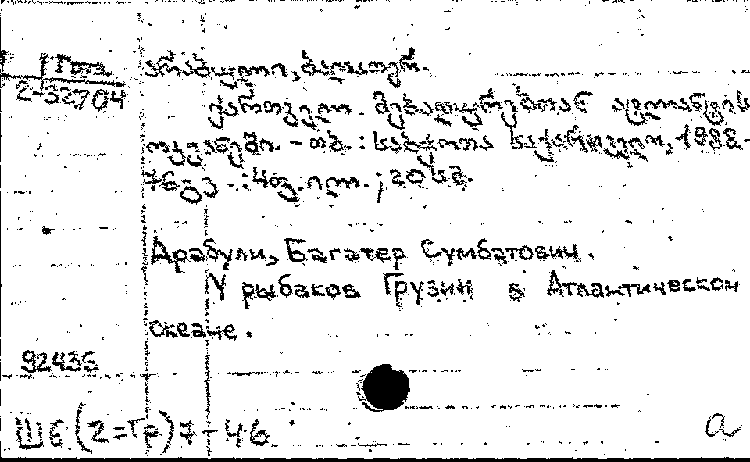 არაბული, ბაღათერ.
2-32704
ქართველ. მებადურებთან ატლანტის
ოკეანეში. - თბ. : საბჭოთა საქართველო, 1988.-
76 გვ. : 4 ფ. ილ. ; 20 სმ.
Арабули, Багатер Сумбатович.
У рыбаков Грузии в Атлантическом
океане.
92436
Ш6(2=Гр)7-46
a